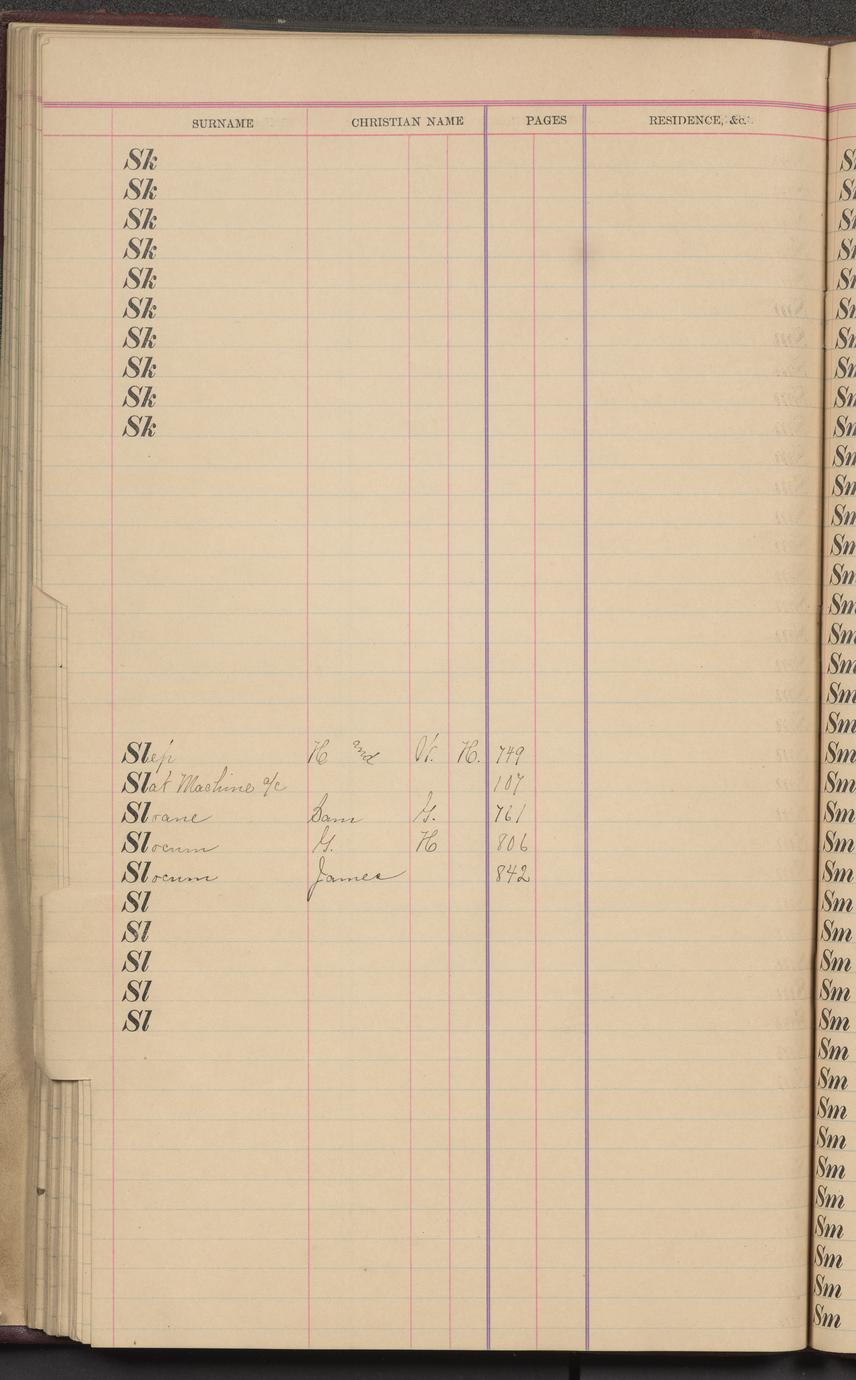 SURNAME CHRISTIAN NAME PAGES RESIDENCE, &c.
Sk
Sk
Sk
Sk
Sk
Sk
Sk
Sk
Sk
Sk
Slep H and W. H. 749
Slat Machine a/c 107
Sloane Sam G. 761
Slocum G. H 806
Slocum James 842
Sl
Sl
Sl
Sl
Sl
Sm
Sm
Sm
Sm
Sm
Sm
Sm
Sm
Sm
Sm
Sm
Sm
Sm
Sm
Sm
Sm
Sm
Sm
Sm
Sm
Sm
Sm
Sm
Sm
Sm
Sm